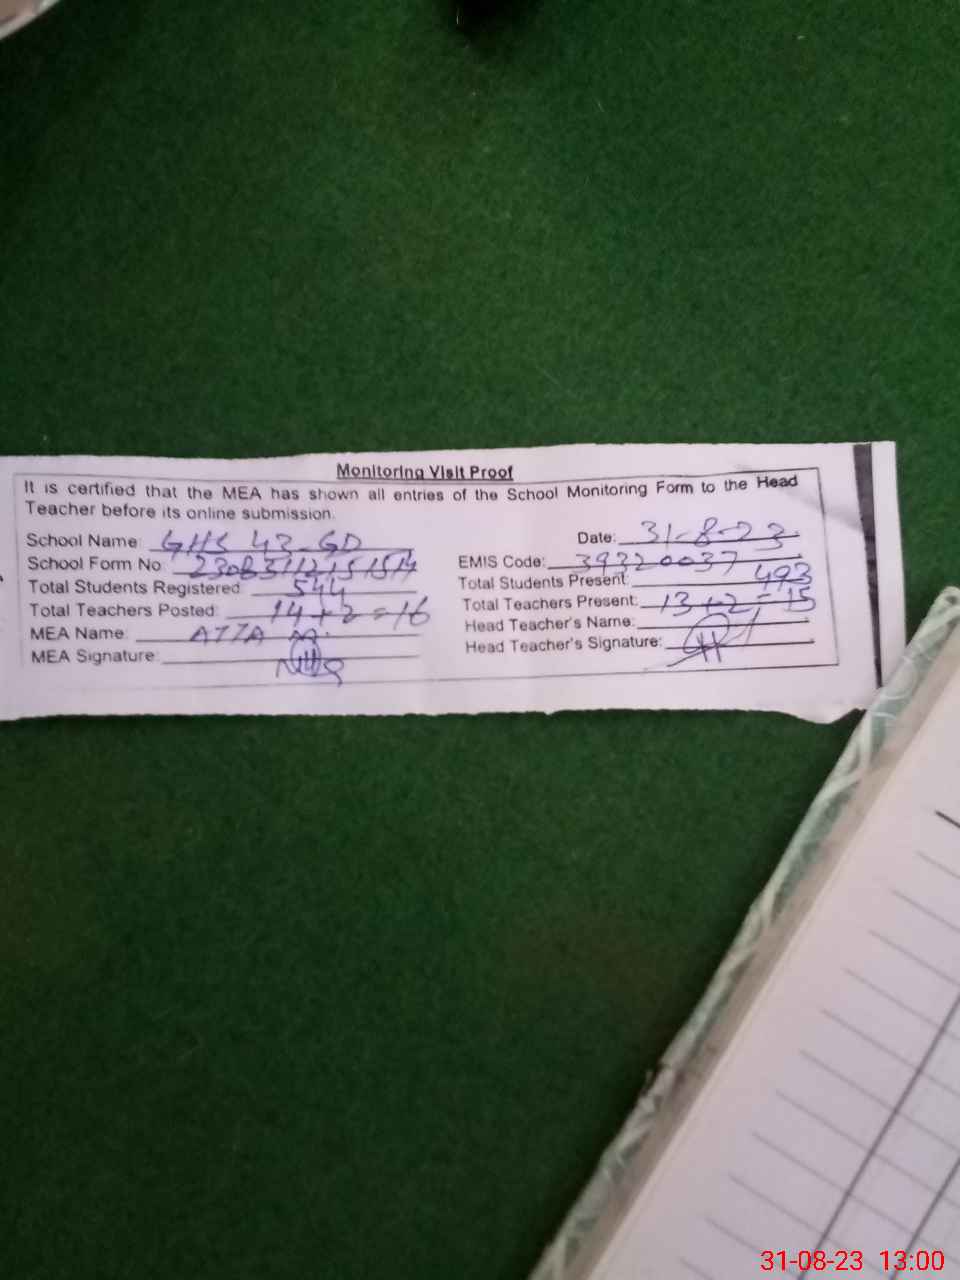 Monitoring Visit Proof
It is certified that the MEA has shown all entries of the School Monitoring Form to the Head
Teacher before its online submission.
School Name: GHS 43-GD
Date: 31-8-23
School Form No:
EMIS Code: 39320037
Total Students Registered: 544
Total Students Present: 493
Total Teachers Posted: 14+2=16
Total Teachers Present: 13+2=15
MEA Name: ATTA M.
Head Teacher's Name:
MEA Signature:
Head Teacher's Signature:
31-08-23 13:00